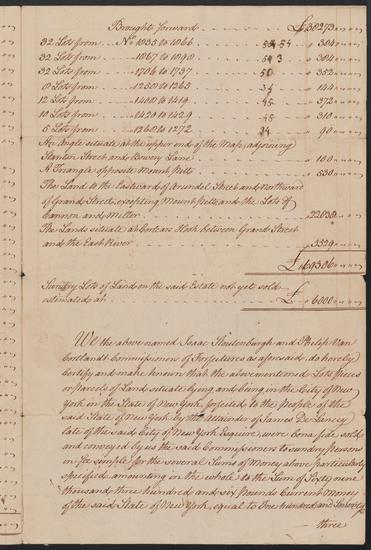 Brought forward £30273
32 Lots from No. 1035 to 1066 54 304
32 Lots from 1067 to 1090 3 304
32 Lots from 1706 to 1737 352
Lots from 1250 to 1265 144
12 Lots from 1400 to 1419 45 372
10 Lots from 1420 to 1429 45 310
5 Lots from 1260 to 1272 90
An Angle situate at the upper end of the Map, adjoining
Stanton Street and Bowery Lane 100
A Triangle opposite Mount Pitts 530
The Land to the Eastward of Arundel Street and Northward
of Grand Street, excepting Mount Pitts and the Lots of
Cannon and Millor
The Lands situate at Corlears Hook between Grand Street
and the East River
£69306
Sundry Lots of Land on the said Estate not yet sold
estimated at £6000
We the above named Isaac Stoutenburgh and Philip Van
Cortlandt Commissioners of Forfeitures as aforesaid do hereby
Certify and make known that the abovementioned Lots Pieces
or parcels of Land situate lying and being in the City of New
york in the State of New York, forfeited to the people of the
said State of New York by the attainder of James De Lancey
late of the said City of New York Esquire, were bona fide sold
and conveyed by us the said Commissioners to sundry persons
in fee simple for the several Sums of Money above particularly
specified, amounting in the whole to the Sum of Sixty nine
thousand three hundred and six pounds Current Money
of the said State of New York, equal to One hundred and
three